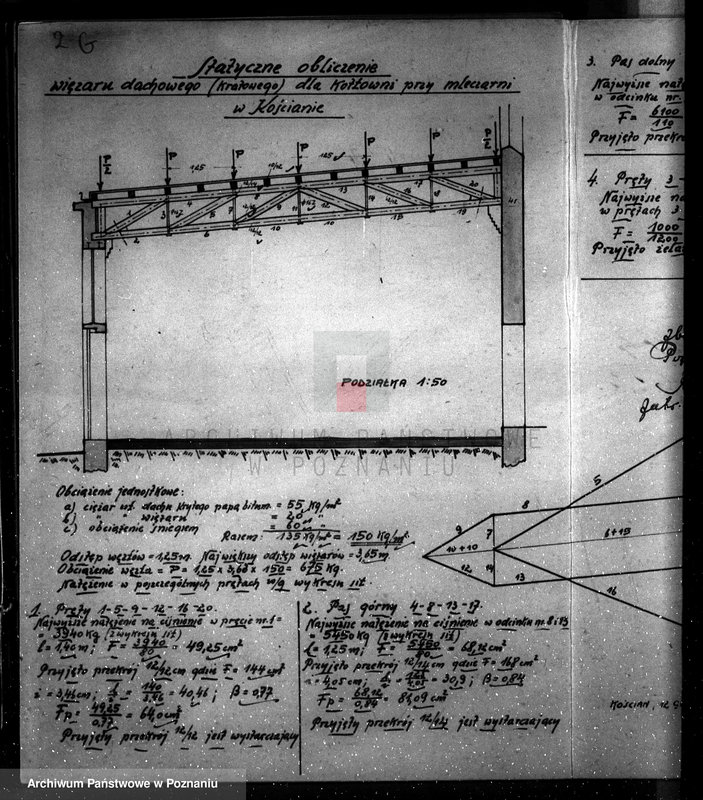 2 G
Statyczne obliczenie
więzaru dachowego (kratowego) dla kotłowni przy mleczarni
w Kościanie
P/2 P P P P P P/2
1.25 1.25
PODZIAŁKA 1:50
ARCHIWUM PAŃSTWOWE
W POZNANIU
Obciążenie jednostkowe:
a) ciężar wł. dachu krytego papą bitum. = 55 kg/m²
b) " " więzaru = 20 " "
c) obciążenie śniegiem = 60 " "
Razem: 135 kg/m² = 150 kg/m²
Odstęp węzłów = 1,25m. Największy odstęp więzarów = 3,65m.
Obciążenie węzła = P = 1,25 x 3,60 x 150 = 675 kg.
Natężenie w poszczególnych prętach w/g wykresu sił.
1. Pręty 1-5-9-12-16-20.
Najwyższe natężenie na ciśnienie w pręcie nr. 1 =
= 3940 kg (z wykresu sił)
l = 1,40 m; F = 3940/80 = 49,25 cm²
Przyjęto przekrój 12/12 cm gdzie F = 144 cm²
i = 3,46 cm; l/i = 140/3.46 = 40,46; β = 0,77
Fp = 49,25/0,77 = 64,0 cm²
Przyjęty przekrój 12/12 jest wystarczający
2. Pas górny 4-8-13-17.
Najwyższe natężenie na ciśnienie w odcinku nr. 8 i 13
= 5450 kg (z wykresu sił)
l = 1,25 m; F = 5450/80 = 68,12 cm²
Przyjęto przekrój 12/14 cm gdzie F = 168 cm²
i = 4,05 cm; l/i = 125/4.05 = 30,9; β = 0,84
Fp = 68,12/0,84 = 81,09 cm²
Przyjęty przekrój 12/14 jest wystarczający
3. Pas dolny
Najwyższe natęż
w odcinku nr.
F = 6100/110
Przyjęto przekr
4. Pręty 3 -
Najwyższe na
w prętach 3
F = 1000/1200
Przyjęto żela
5
8
9
7
10+10
6+15
12
14
13
16
KOŚCIAN, 12
Archiwum Państwowe w Poznaniu